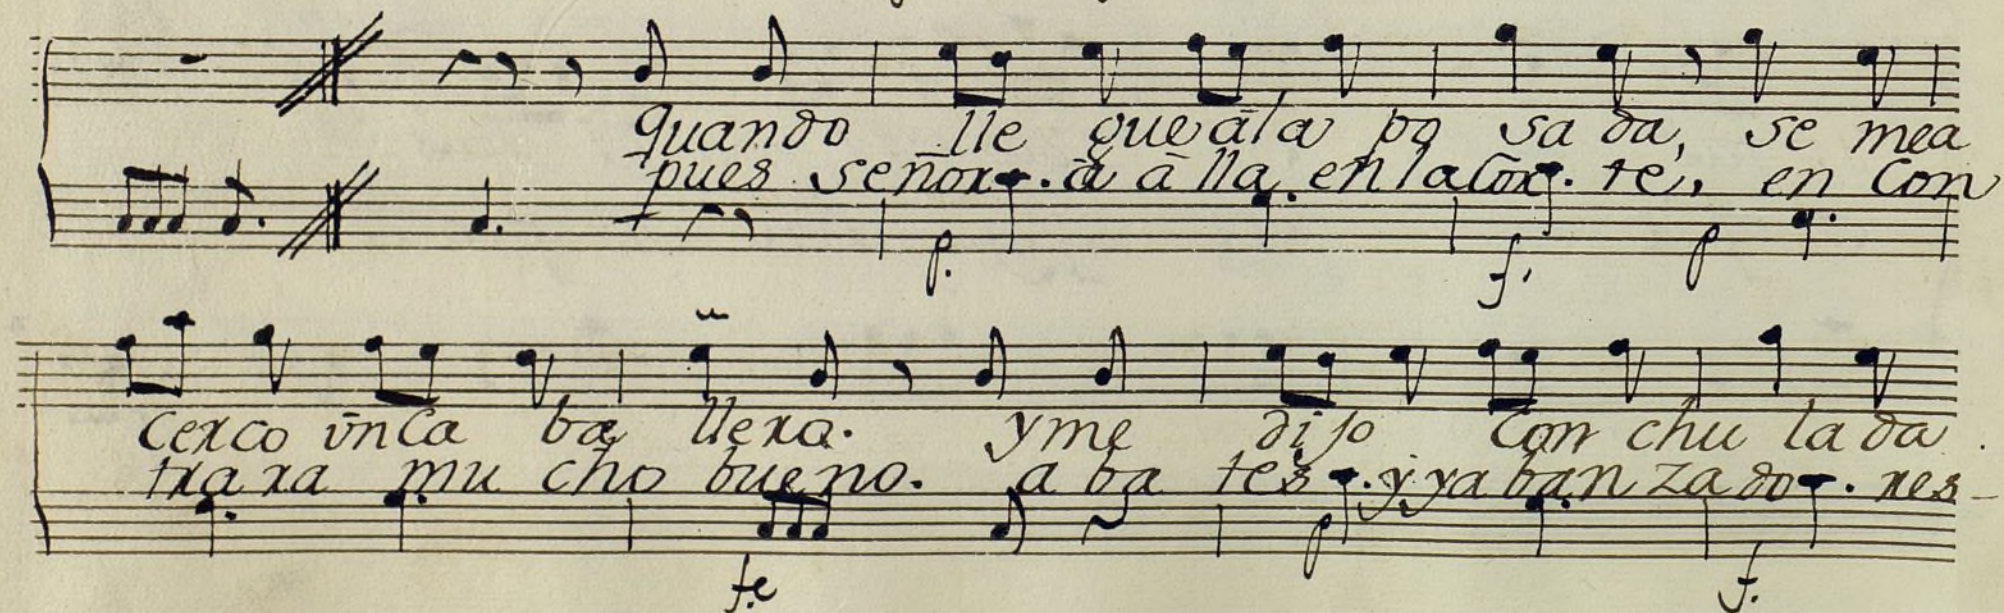 quando lle gue ā la po sa da, se mea
pues señor. ā ā lla en la Cor. te, en Con
p. f. p
cerco ūn Ca ba llero. y me dijo Con chu la da.
trara mu cho bueno. a ba tes. y ya ban za do. res
fe p f.